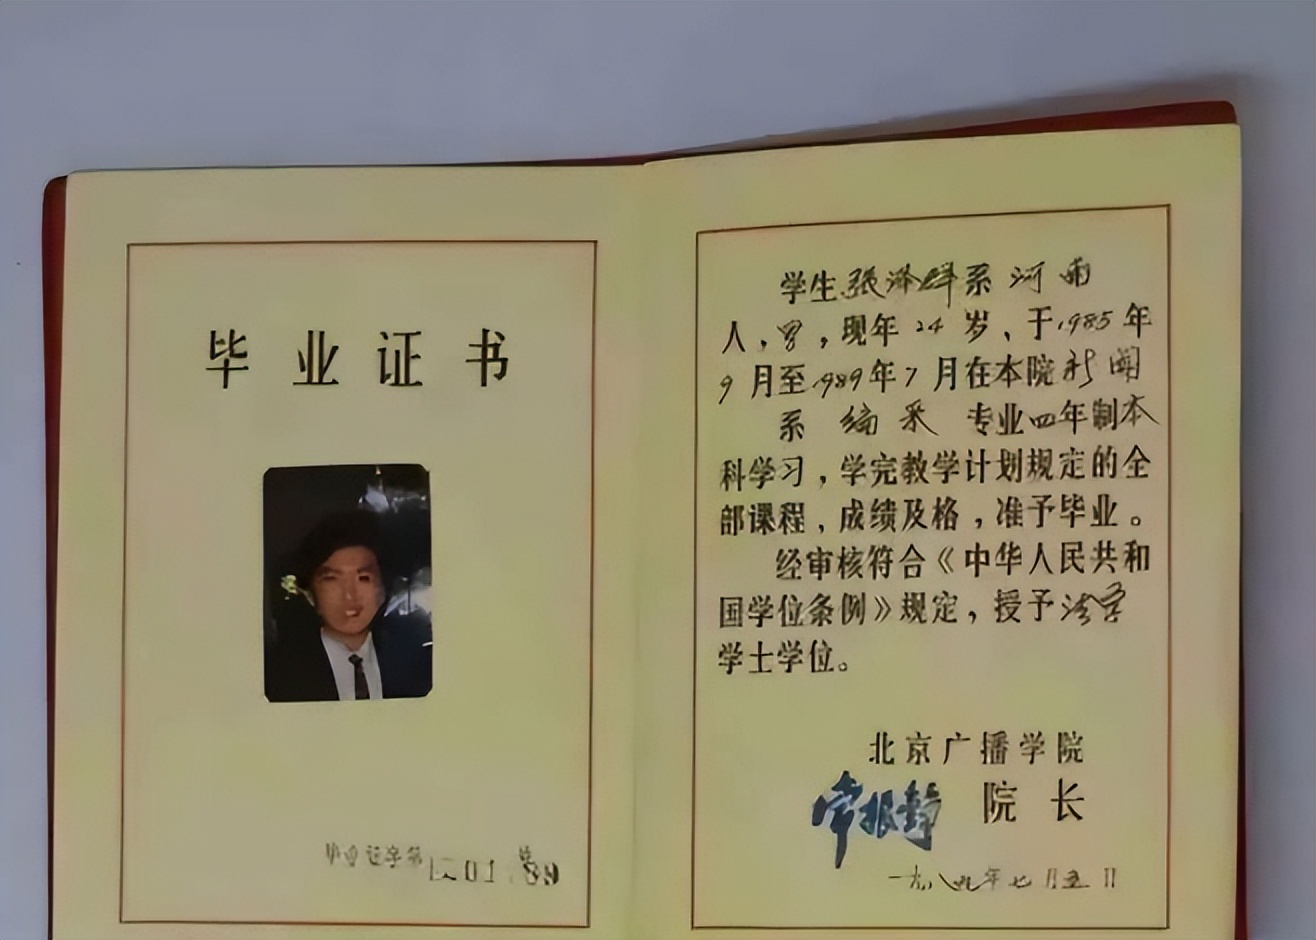 毕业证书
毕业证字第
89
学生张泽群系河南
人,男,现年24岁、于1985年
9月至1989年7月在本院新闻
系 编采 专业四年制本
科学习,学完教学计划规定的全
部课程,成绩及格,准予毕业。
经审核符合《中华人民共和
国学位条例》规定,授予法学
学士学位。
北京广播学院
常振铮 院长
一九八九年七月五日